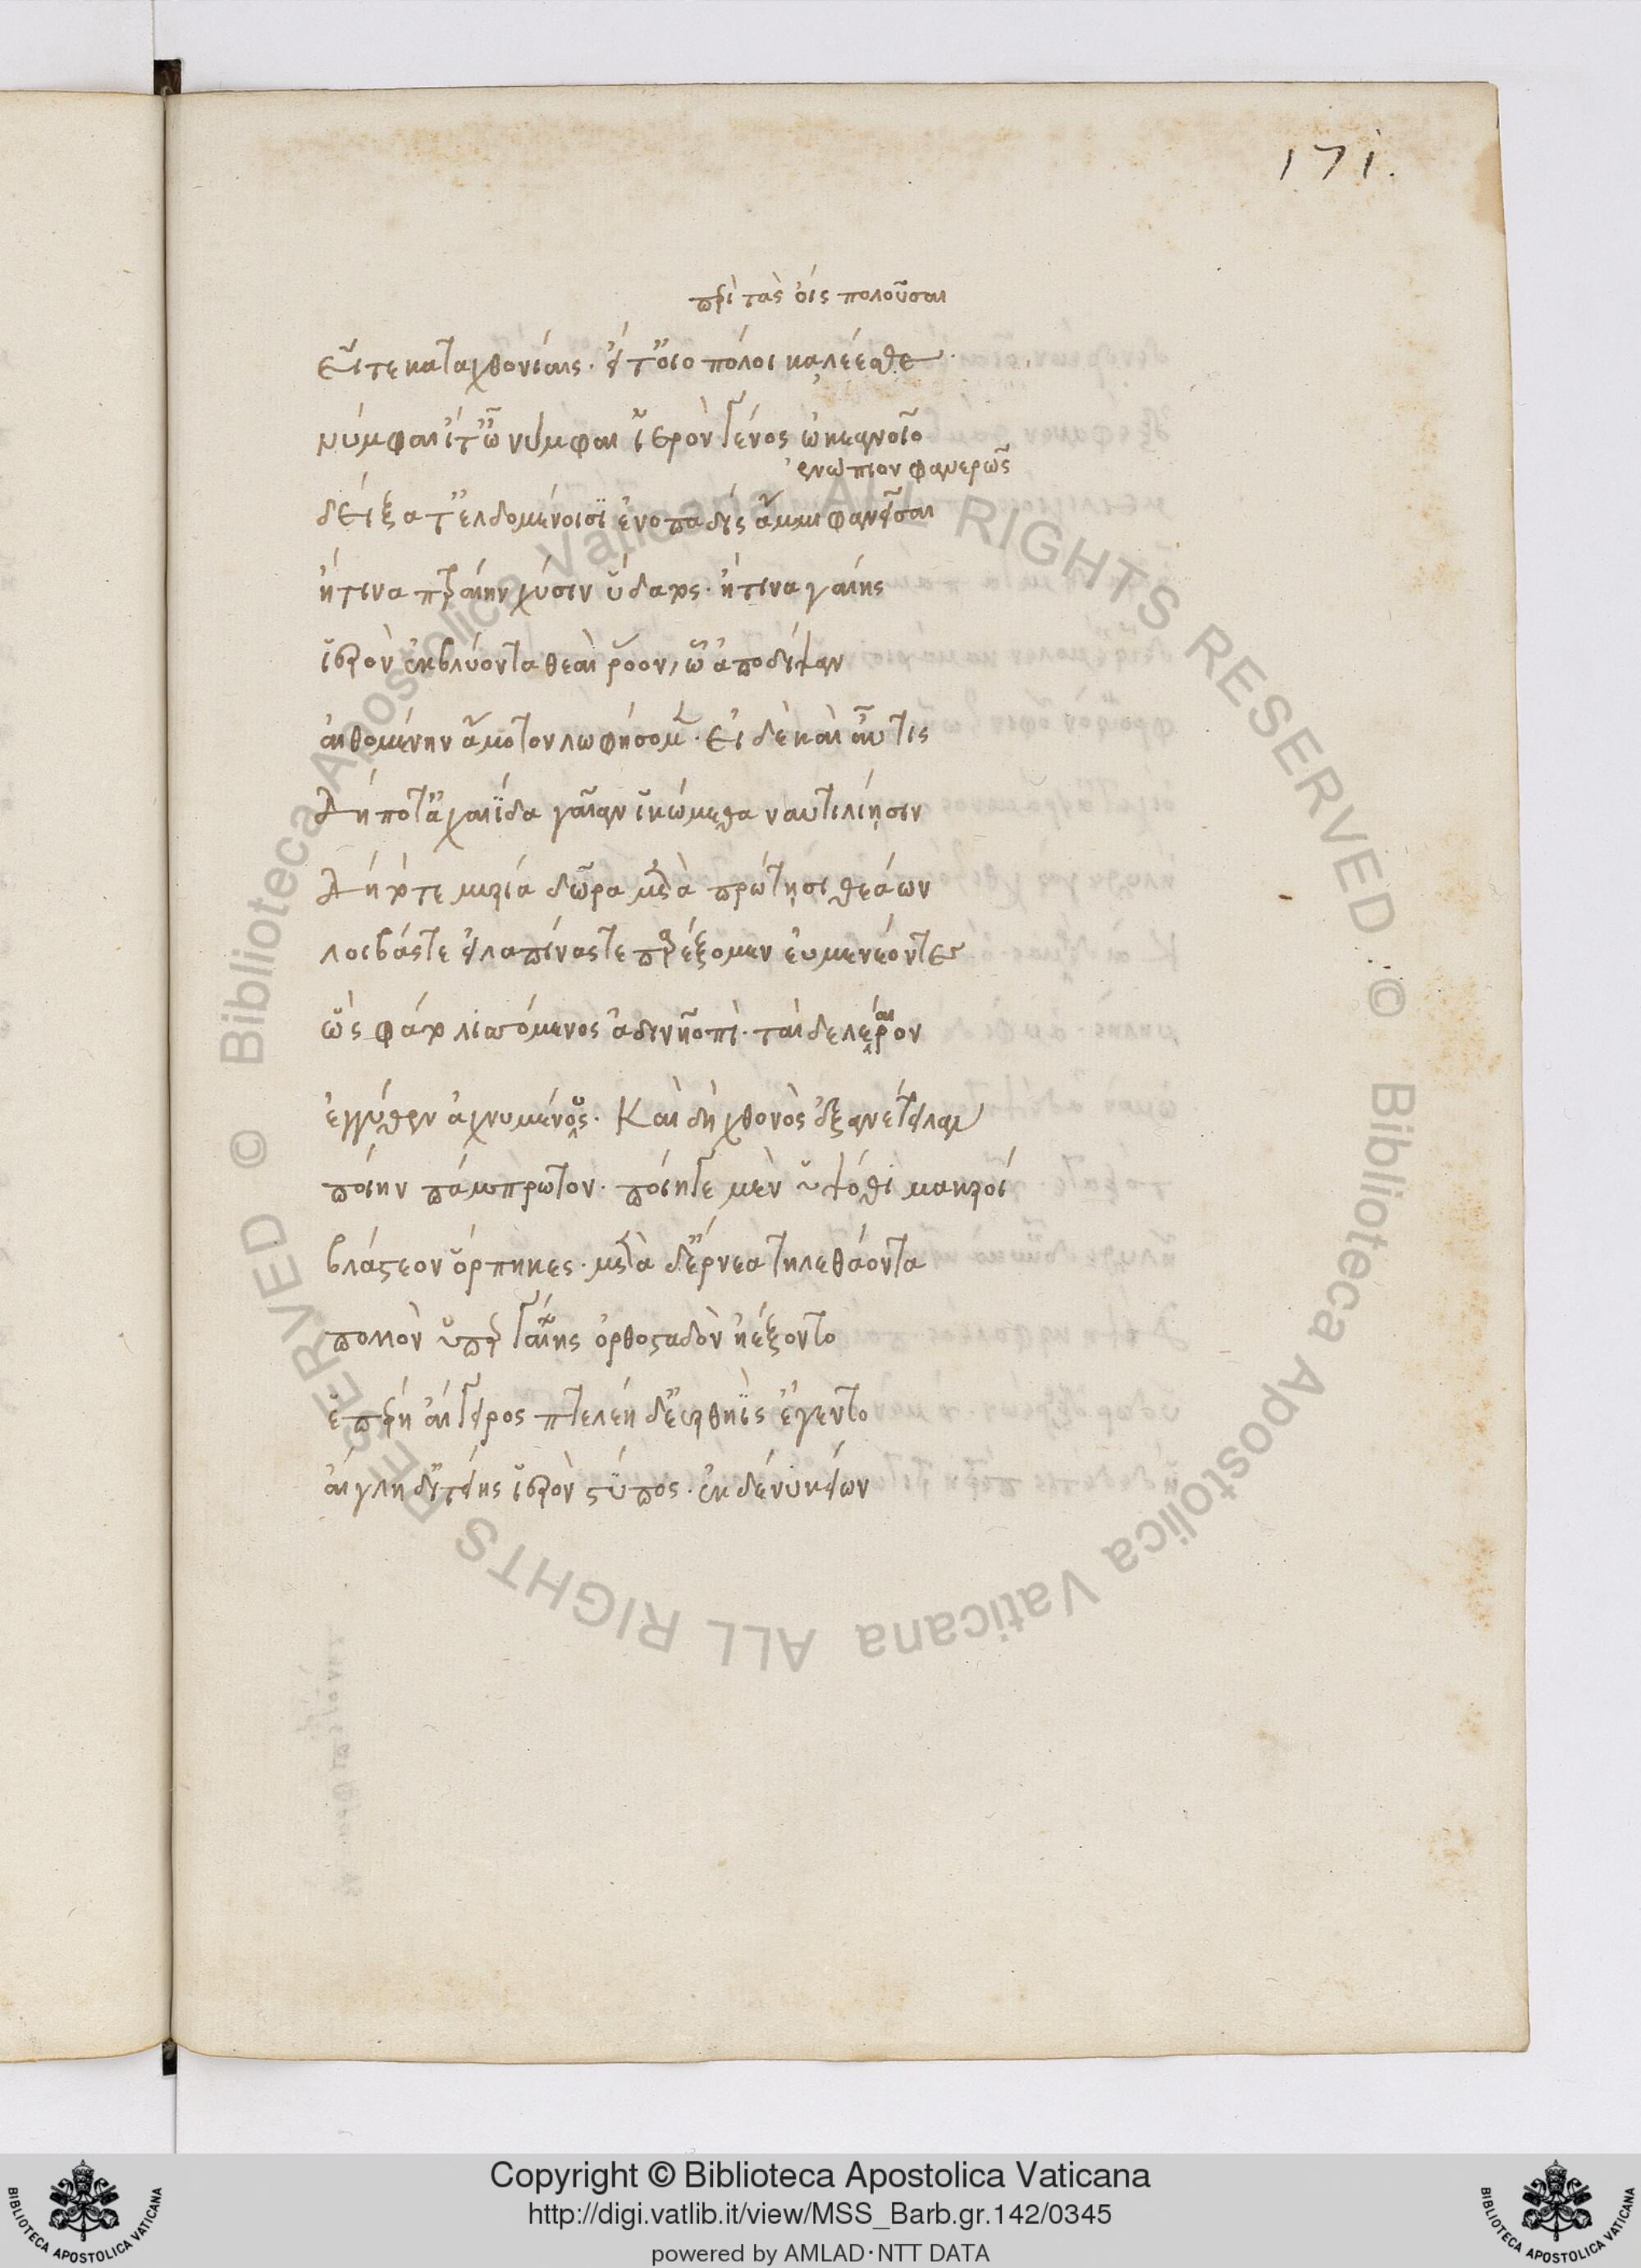 171.
περὶ τὰς ὄις πολοῦσαι
εἴτε καταχθονίαις· εἴτ' οἰοπόλοι καλέεσθε·
νύμφαι ἴτ' ὦ νύμφαι ἱερὸν γένος ὠκεανοῖο
ἐνώπιον φανερῶς
δείξατ' ἐλδομένοισϊ ἐνοπαδὶς ἄμμι φανεῖσαι
ἤ τινα πετραίην χύσιν ὕδατος· ἤ τινα γαίης
ἱερὸν ἐκβλύοντα θεαὶ ῥόον, ὧ ἀπὸ δίψαν
αἰθομένην ἄμοτον λωφήσομεν· εἰ δὲ καὶ αὖτις
δή ποτ' ἀχαιΐδα γαῖαν ἱκώμεθα ναυτιλίησιν
δὴ τότε μυρία δῶρα μετὰ πρώτῃσι θεάων
λοιβάς τε εἰλαπίνας τε παρέξομεν εὐμενέοντες
ὣς φάτο λισσόμενος ἀδινῇ ὀπὶ· ταὶ δ' ἐλέαιρον
ἐγγύθεν ἀχνυμένους· Καὶ δὴ χθονὸς ἐξανέτειλαν
ποίην πάμπρωτον· ποίης γε μὲν ὑψόθι μακροί
βλάστεον ὄρπηκες· μετὰ δ' ἔρνεα τηλεθάοντα
πολλὸν ὑπὲρ γαίης ὀρθοσταδὸν ἠέξοντο
ἑσπέρη αἴγειρος πτελέη δ' ἐρυθηῒς ἔγεντο
αἴγλη δ' ἰτείης ἱερὸν στύπος· ἐκ δέ νυ κείων
Copyright © Biblioteca Apostolica Vaticana
http://digi.vatlib.it/view/MSS_Barb.gr.142/0345
powered by AMLAD·NTT DATA
BIBLIOTECA APOSTOLICA VATICANA
BIBLIOTECA APOSTOLICA VATICANA
© Biblioteca Apostolica Vaticana ALL RIGHTS RESERVED © Biblioteca Apostolica Vaticana ALL RIGHTS RESERVED